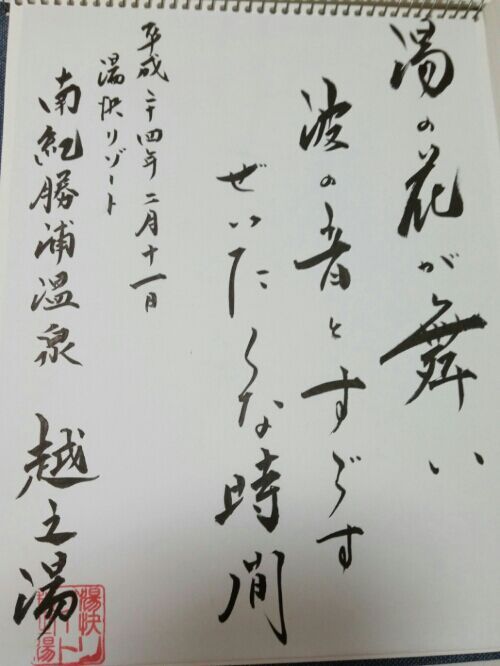 湯の花が舞い
波の音とすごす
ぜいたくな時間
平成二十四年二月十一日
湯快リゾート
南紀勝浦温泉 越之湯
湯快リ
ート
湯